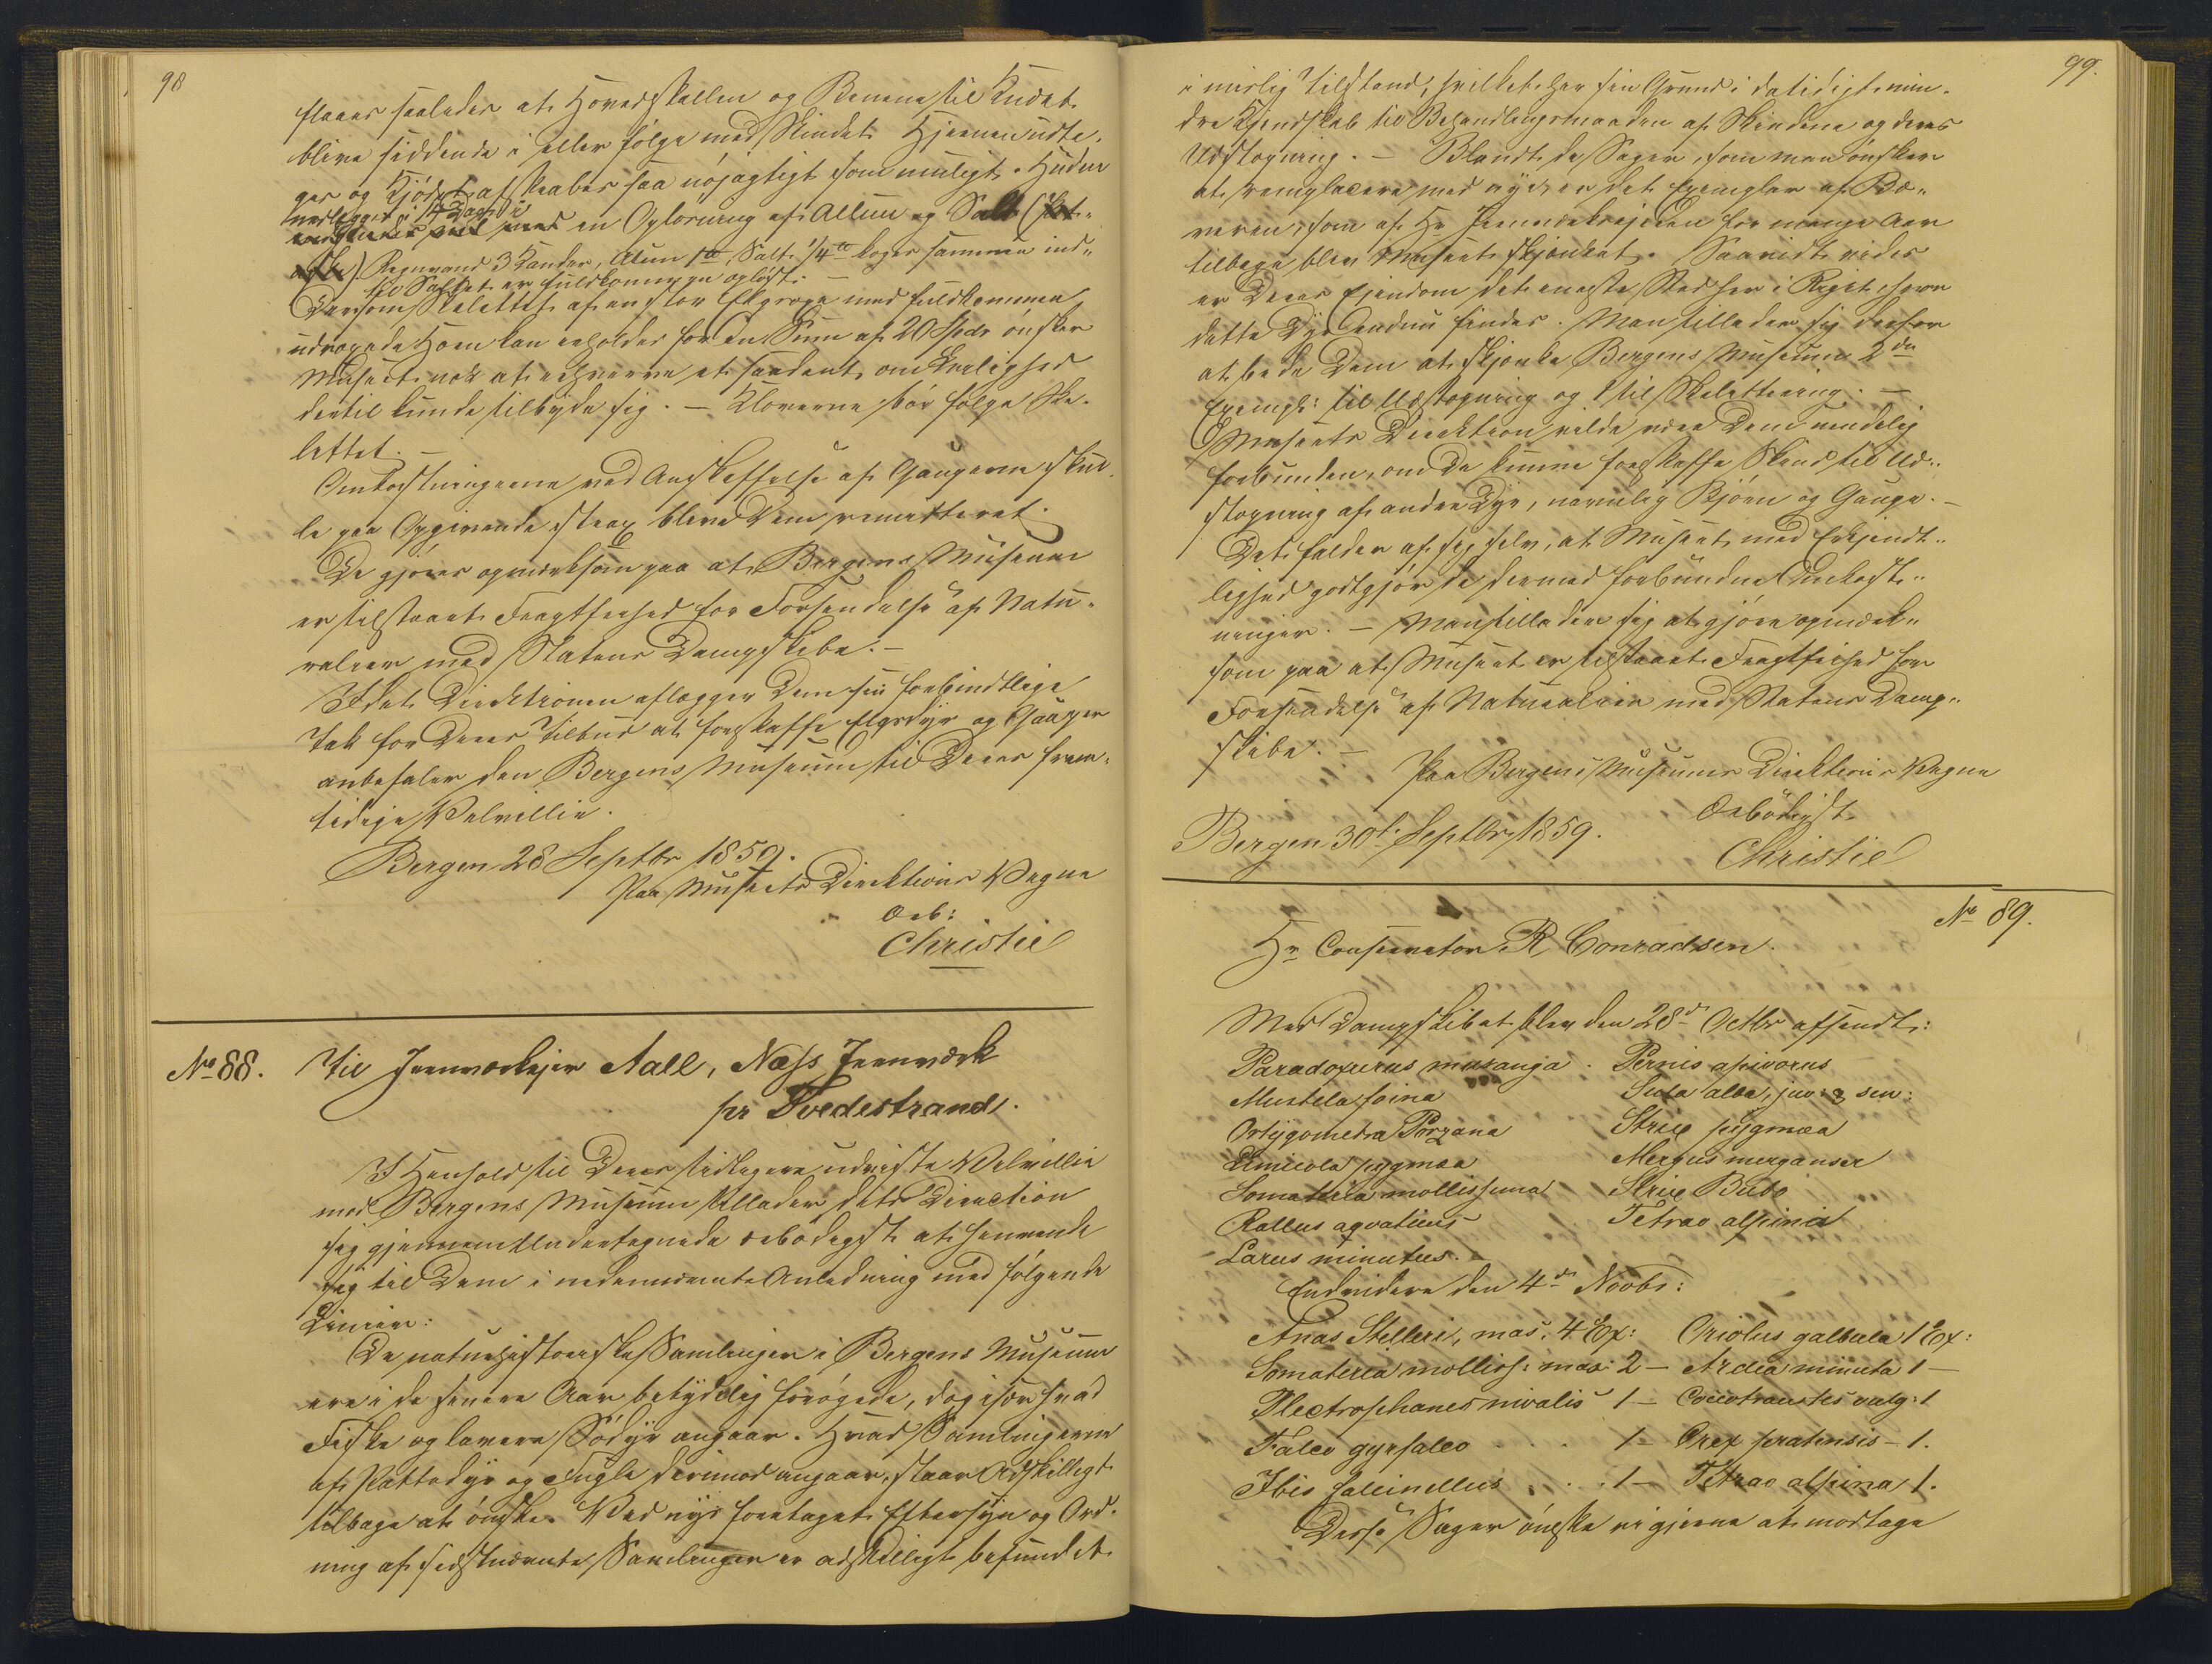 98
flaaes saaledes at Hovedskallen og Benene til Knæet
blive siddende i eller følge med Skindet. Hjernen udta-
ges og Kjødet afskrabes saa nøjagtigt som muligt. Huden
nedlægges i 14 Dage i
en Opløsning af Allun og Salt
Regnvand 3 Kander, Alun 1 ℔, Salt 1/4 ℔ koges sammen ind-
til Saltet er fuldkommen opløst. —
Dersom Skelettet af en stor Elgsoxe med fuldkommen
udvoxede Horn kan erholdes for en Sum af 20 Spdr ønsker
Museet nok at erhverve et saadant, om Leilighed
dertil kunde tilbyde sig. — Klovene bør følge Ske-
lettet. —
Omkostningerne ved Anskaffelse af Gauperne skul-
le paa Opgivende strax blive Dem remitteret.
De gjøres opmærksom paa at Bergens Museum
er tilstaaet Fragtfrihed for Forsendelse af Natu-
ralier med Statens Dampskibe. —
Idet Direktionen aflægger Dem sin forbindtlige
Tak for Deres Tilbud at forskaffe Elgsdyr og Gauper
anbefaler den Bergens Museum til Deres frem-
tidige Velvillie.
Bergen 28 Septbr 1859.
Paa Museets Direktions Vegne
Ærb:
Christie
No 88. Til Jernværksejer Aall, Næss Jernværk
pr Tvedestrand.
I Henhold til Deres tidligere udviste Velvillie
mod Bergens Museum tillader dets Direction
sig gjennem Undertegnede ærbødigst at henvende
sig til Dem i nedennævnte Anledning med følgende
Linier:
De naturhistoriske Samlinger i Bergens Museum
ere i de senere Aar betydelig forøgede, dog især hvad
Fiske og lavere Sødyr angaar. Hvad Samlingerne
af Pattedyr og Fugle derimod angaar, staar Adskilligt
tilbage at ønske. Ved nys foretaget Eftersyn og Ord-
ning af sidstnævnte Samlinger er adskilligt befundet
99.
i mislig Tilstand, hvilket har sin Grund i datidigt min-
dre Kjendskab til Behandlingsmaaden af Skindene og deres
Udstopning. — Blandt de Sager, som man ønsker
at remplacere med nye, er det Exemplar af Bæ-
veren, som af Hr Jernværksejeren for mange Aar
tilbage blev Museet skjænket. Saavidt vides
er Deres Ejendom det eneste Sted her i Riget, hvor
dette Dyr endnu findes. Man tillader sig derfor
at bede Dem at skjænke Bergens Museum 2de
Exempl: til Udstopning og 1 til Skelettering. —
Museets Direktion vilde være Dem uendelig
forbunden, om De kunne forskaffe Skind til Ud-
stopning af andre Dyr, navnlig Bjørn og Gaupe. —
Det falder af sig selv, at Museet med Erkjendt-
lighed godtgjør de dermed forbundne Omkost-
ninger. — Man tillader sig at gjøre opmærk-
som paa at Museet er tilstaaet Fragtfrihed for
Forsendelse af Naturalier med Statens Damp-
skibe. —
Paa Bergens Museums Direktions Vegne
Ærbødigst
Bergen 30t Septbr 1859.
Christie
No 89.
Hr Conservator R Conradsen.
Med Dampskibet blev den 28de Octbr afsendt:
Paradoxurus musanga. Pernis apivorus
Mustela foina Sula alba, juv: & sen:
Ortygometra Porzana Strix pygmæa
Limicola pygmæa Mergus merganser
Somateria mollissima Strix Bubo
Rallus aqvaticus Tetrao alpina
Larus minutus.
Endvidere den 4de Novbr:
Anas Stelleri, mas, 4 Ex: Oriolus galbula 1 Ex:
Somateria molliss: mas: 2 — Ardea minuta 1 —
Plectrophanes nivalis 1 — Coccotraustes vulg: 1
Falco gyrfalco . . . 1 — Crex pratensis — 1.
Ibis falcinellus . . . 1 — Tetrao alpina 1.
Disse Sager ønske vi gjerne at modtage